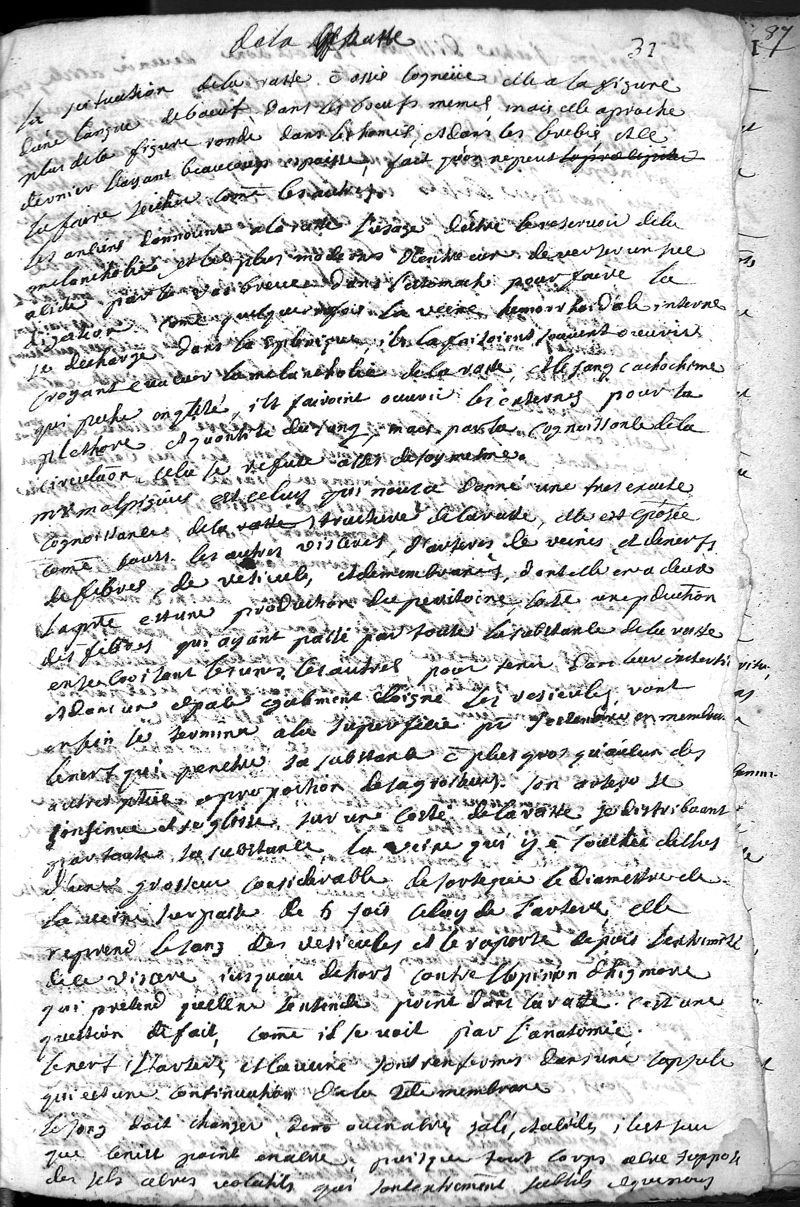 De la Ratte
31
87
La scituation de la ratte è assé cogneüe elle a la figure
d'une langue de boeuf dans les boeufs memes, mais elle aproche
plus de la figure ronde dans les homes, et dans les brebis et le
dernier l'ayant beaucoup espaisse, fait qu'on ne peut
la faire seicher come les autres.
Les antiens donnoient a la ratte l'usage d'être le reservoir de la
melancholie, et les plus modernes d'entre eux de verser un suc
acide par le vas breve dans l'estomach pour faire la
digestion come quelque fois la veine hemorrhoidale interne
se decharge dans la splenique ils la faisoient souvent ouvrir
croyant evacuer la melancholie de la ratte, et le sang cachochime
qui peche en qlité, ils faisoint ouvrir les externes pour la
plethore et quantité du sang, mais par la cognoissance de la
circulation cela se refute assés de soy mesme.
mr malpigius est celuy qui nous a donné une tres exacte
cognoissance de la ratte structure de la ratte, elle est cposée
come tous les autres visceres, d'arteres de veines, et de nerfs
de fibres, de vesicules, et de membranes, dont elle en a deux
la pre est une production du peritoine, l'autre une pduction
des fibres qui ayant passé par toute la substance de la ratte
entrecoisant les unes les autres pour tenir dans leur
et dans un espace egalement eloigné les vesicules, vont
enfin se terminer a la superficie pr s'estendre en membrane
le nerf qui penetre sa substance è plus gros qu'aucun des
autres pties a proportion de sa grosseur. son artere se
continue et se glisse sur un costé de la ratte se distribuant
par toute sa substance la veine qui y è couchée dessus
d'une grosseur considerable de sorte que le diametre de
la veine surpasse de 5 fois celuy de l'artere, elle
reprend le sang des vesicules et le raporte depuis l'extremité
de ce viscere jusqu'au dehors contre l'opinion d'higmore
qui pretend qu'elle ne s'entende point dans la ratte. c'est une
question de fait, come il se voit par l'anatomie.
le nerf l'artere, et la veine sont renfermés dans une capsule
qui est une continuation de la 2de membrane
le sang doit changer, donc ou en acre, salé, et acide, il est sur
que ce n'est point en acre, puisque tout corps acre suppose
des sels acres volatils, qui sont extremement subtils et que nous